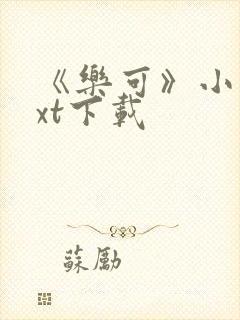 《樂可》小
xt下載
蘇勵